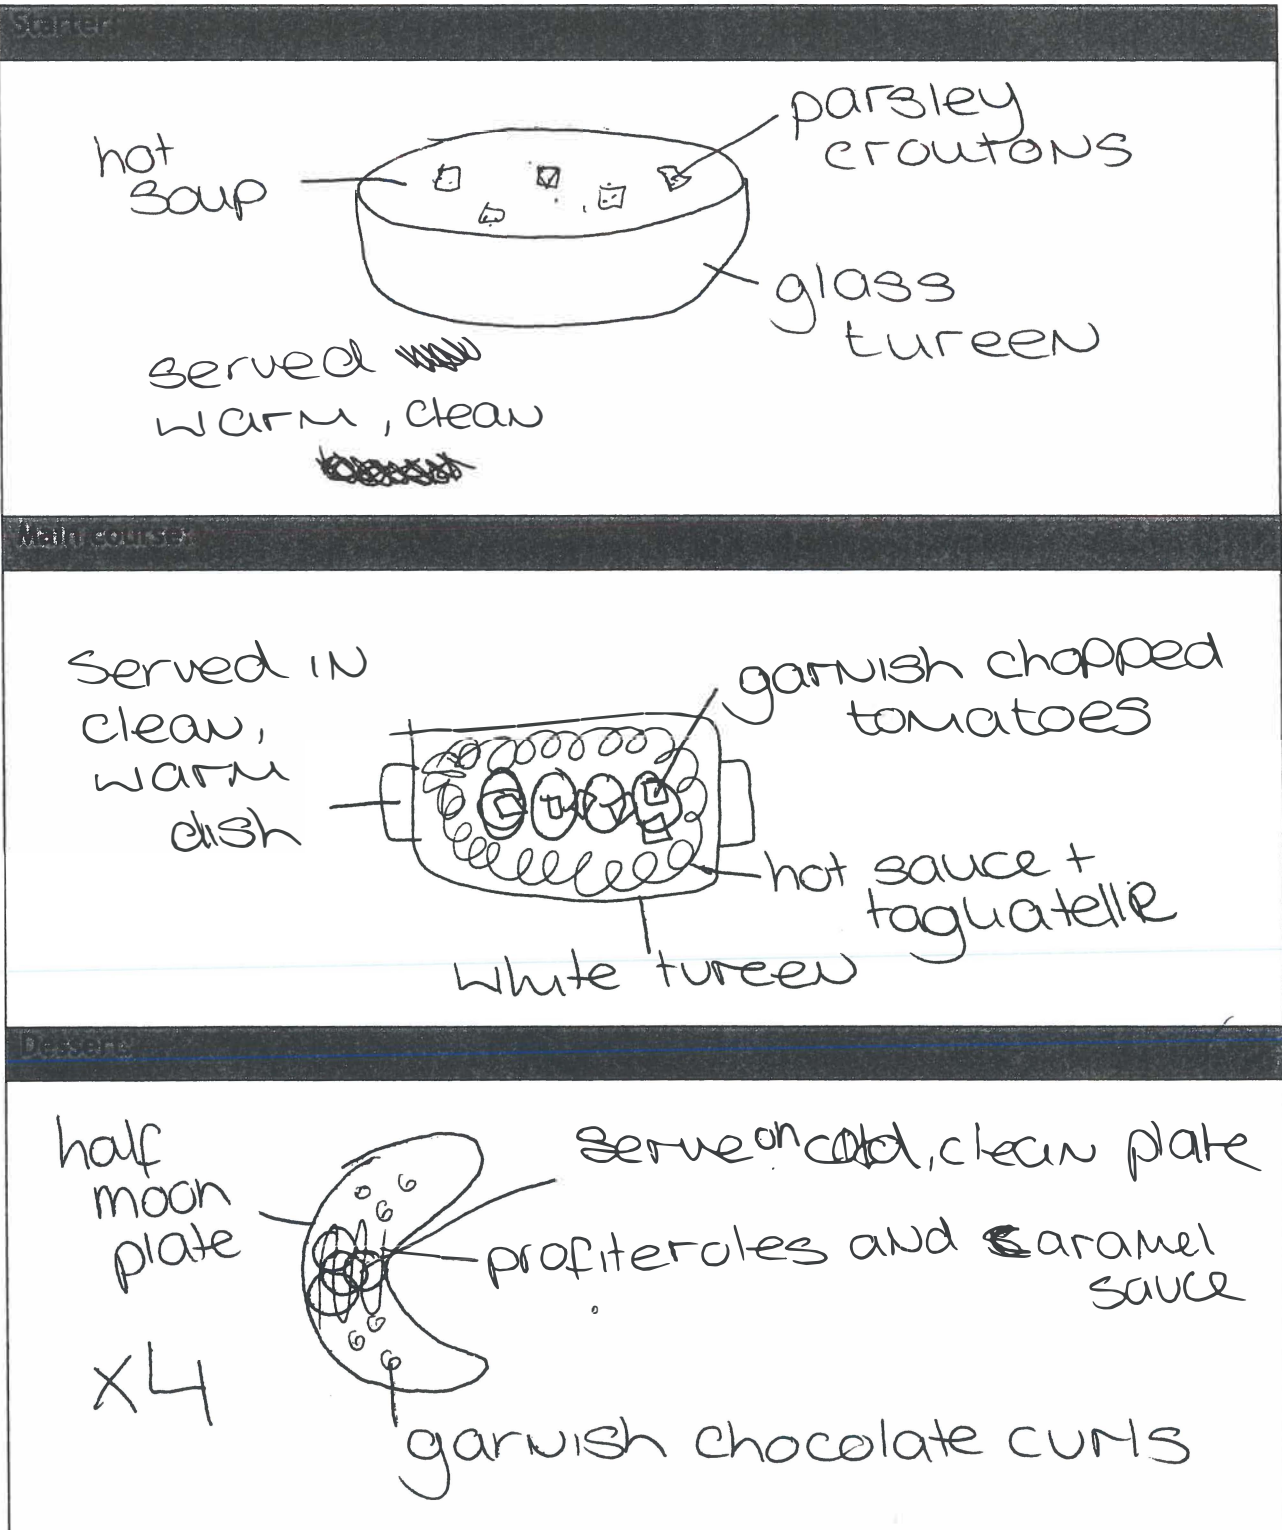 Starter:
hot
soup
parsley
croutons
glass
tureen
served
warm, clean
Main course:
Served in
clean,
warm
dish
garnish chopped
tomatoes
hot sauce +
tagliatelle
white tureen
Dessert:
half
moon
plate
x4
serve on cold, clean plate
profiteroles and caramel
sauce
garnish chocolate curls